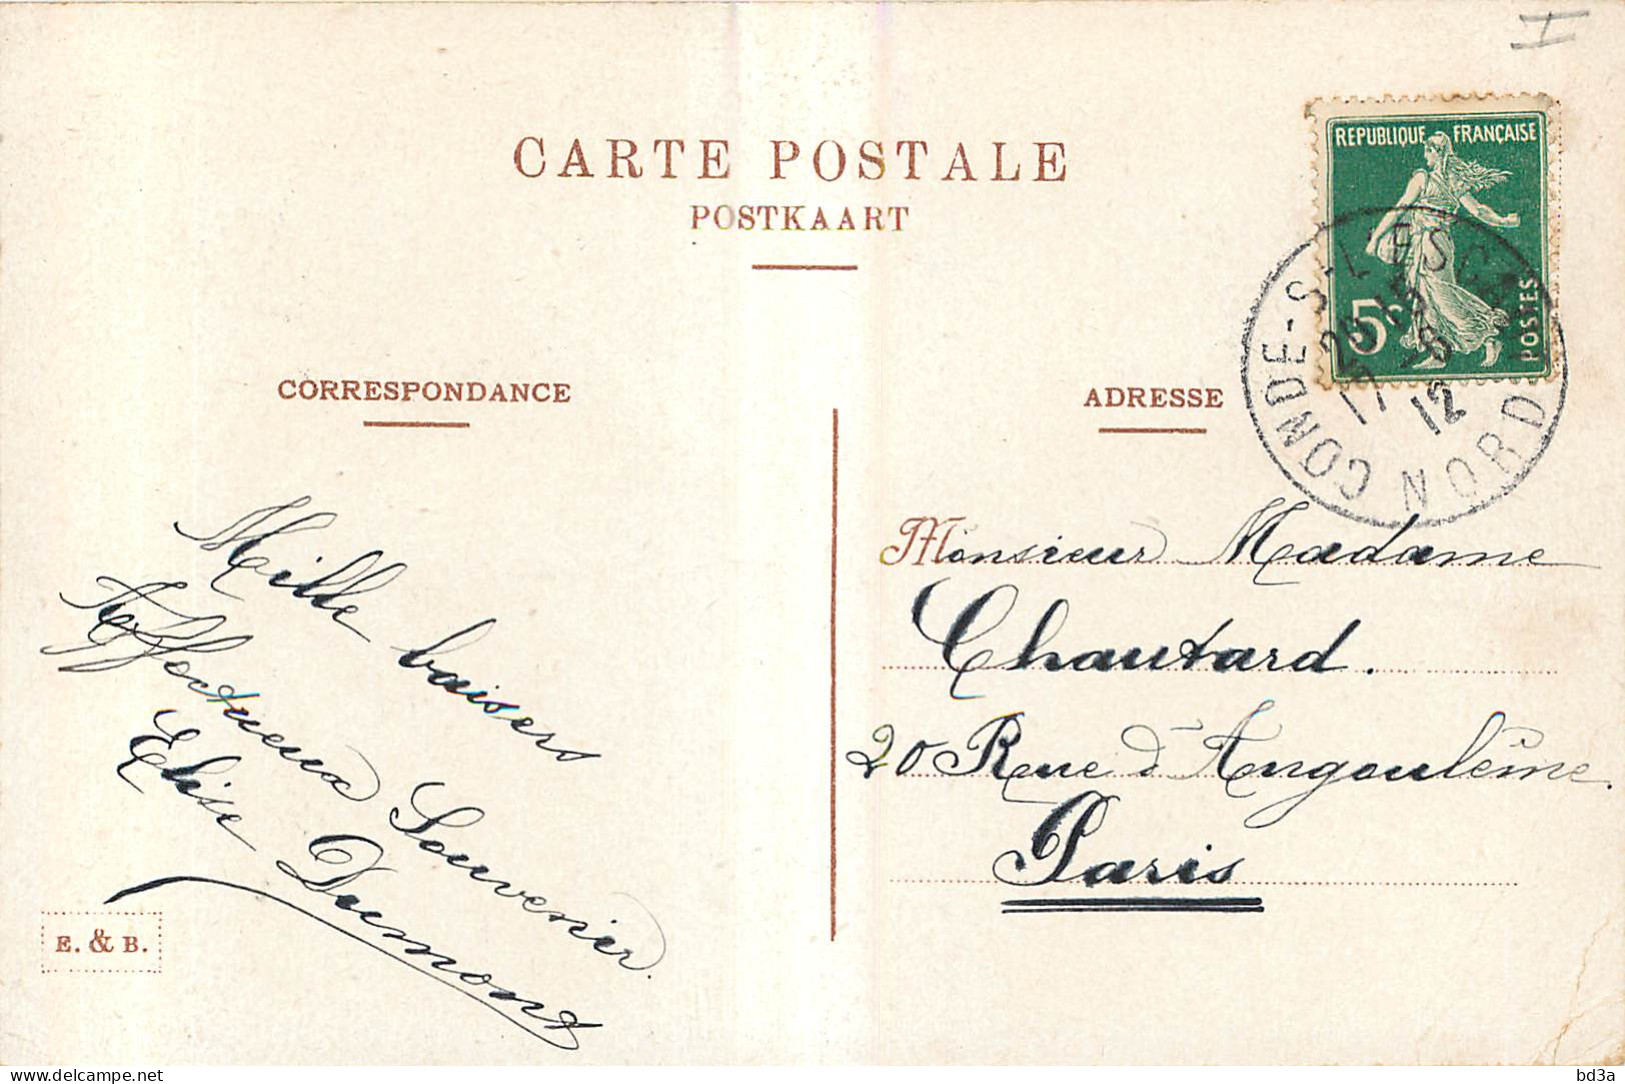 CARTE POSTALE
POSTKAART
CORRESPONDANCE
Mille baisers
Affectueux Souvenir.
Elise Dumont
E. & B.
ADRESSE
REPUBLIQUE FRANÇAISE
5c
POSTES
CONDE-S-L'ESC
NORD
12
Monsieur Madame
Chautard.
20 Rue d'Angoulême.
Paris
delcampe.net
bd3a